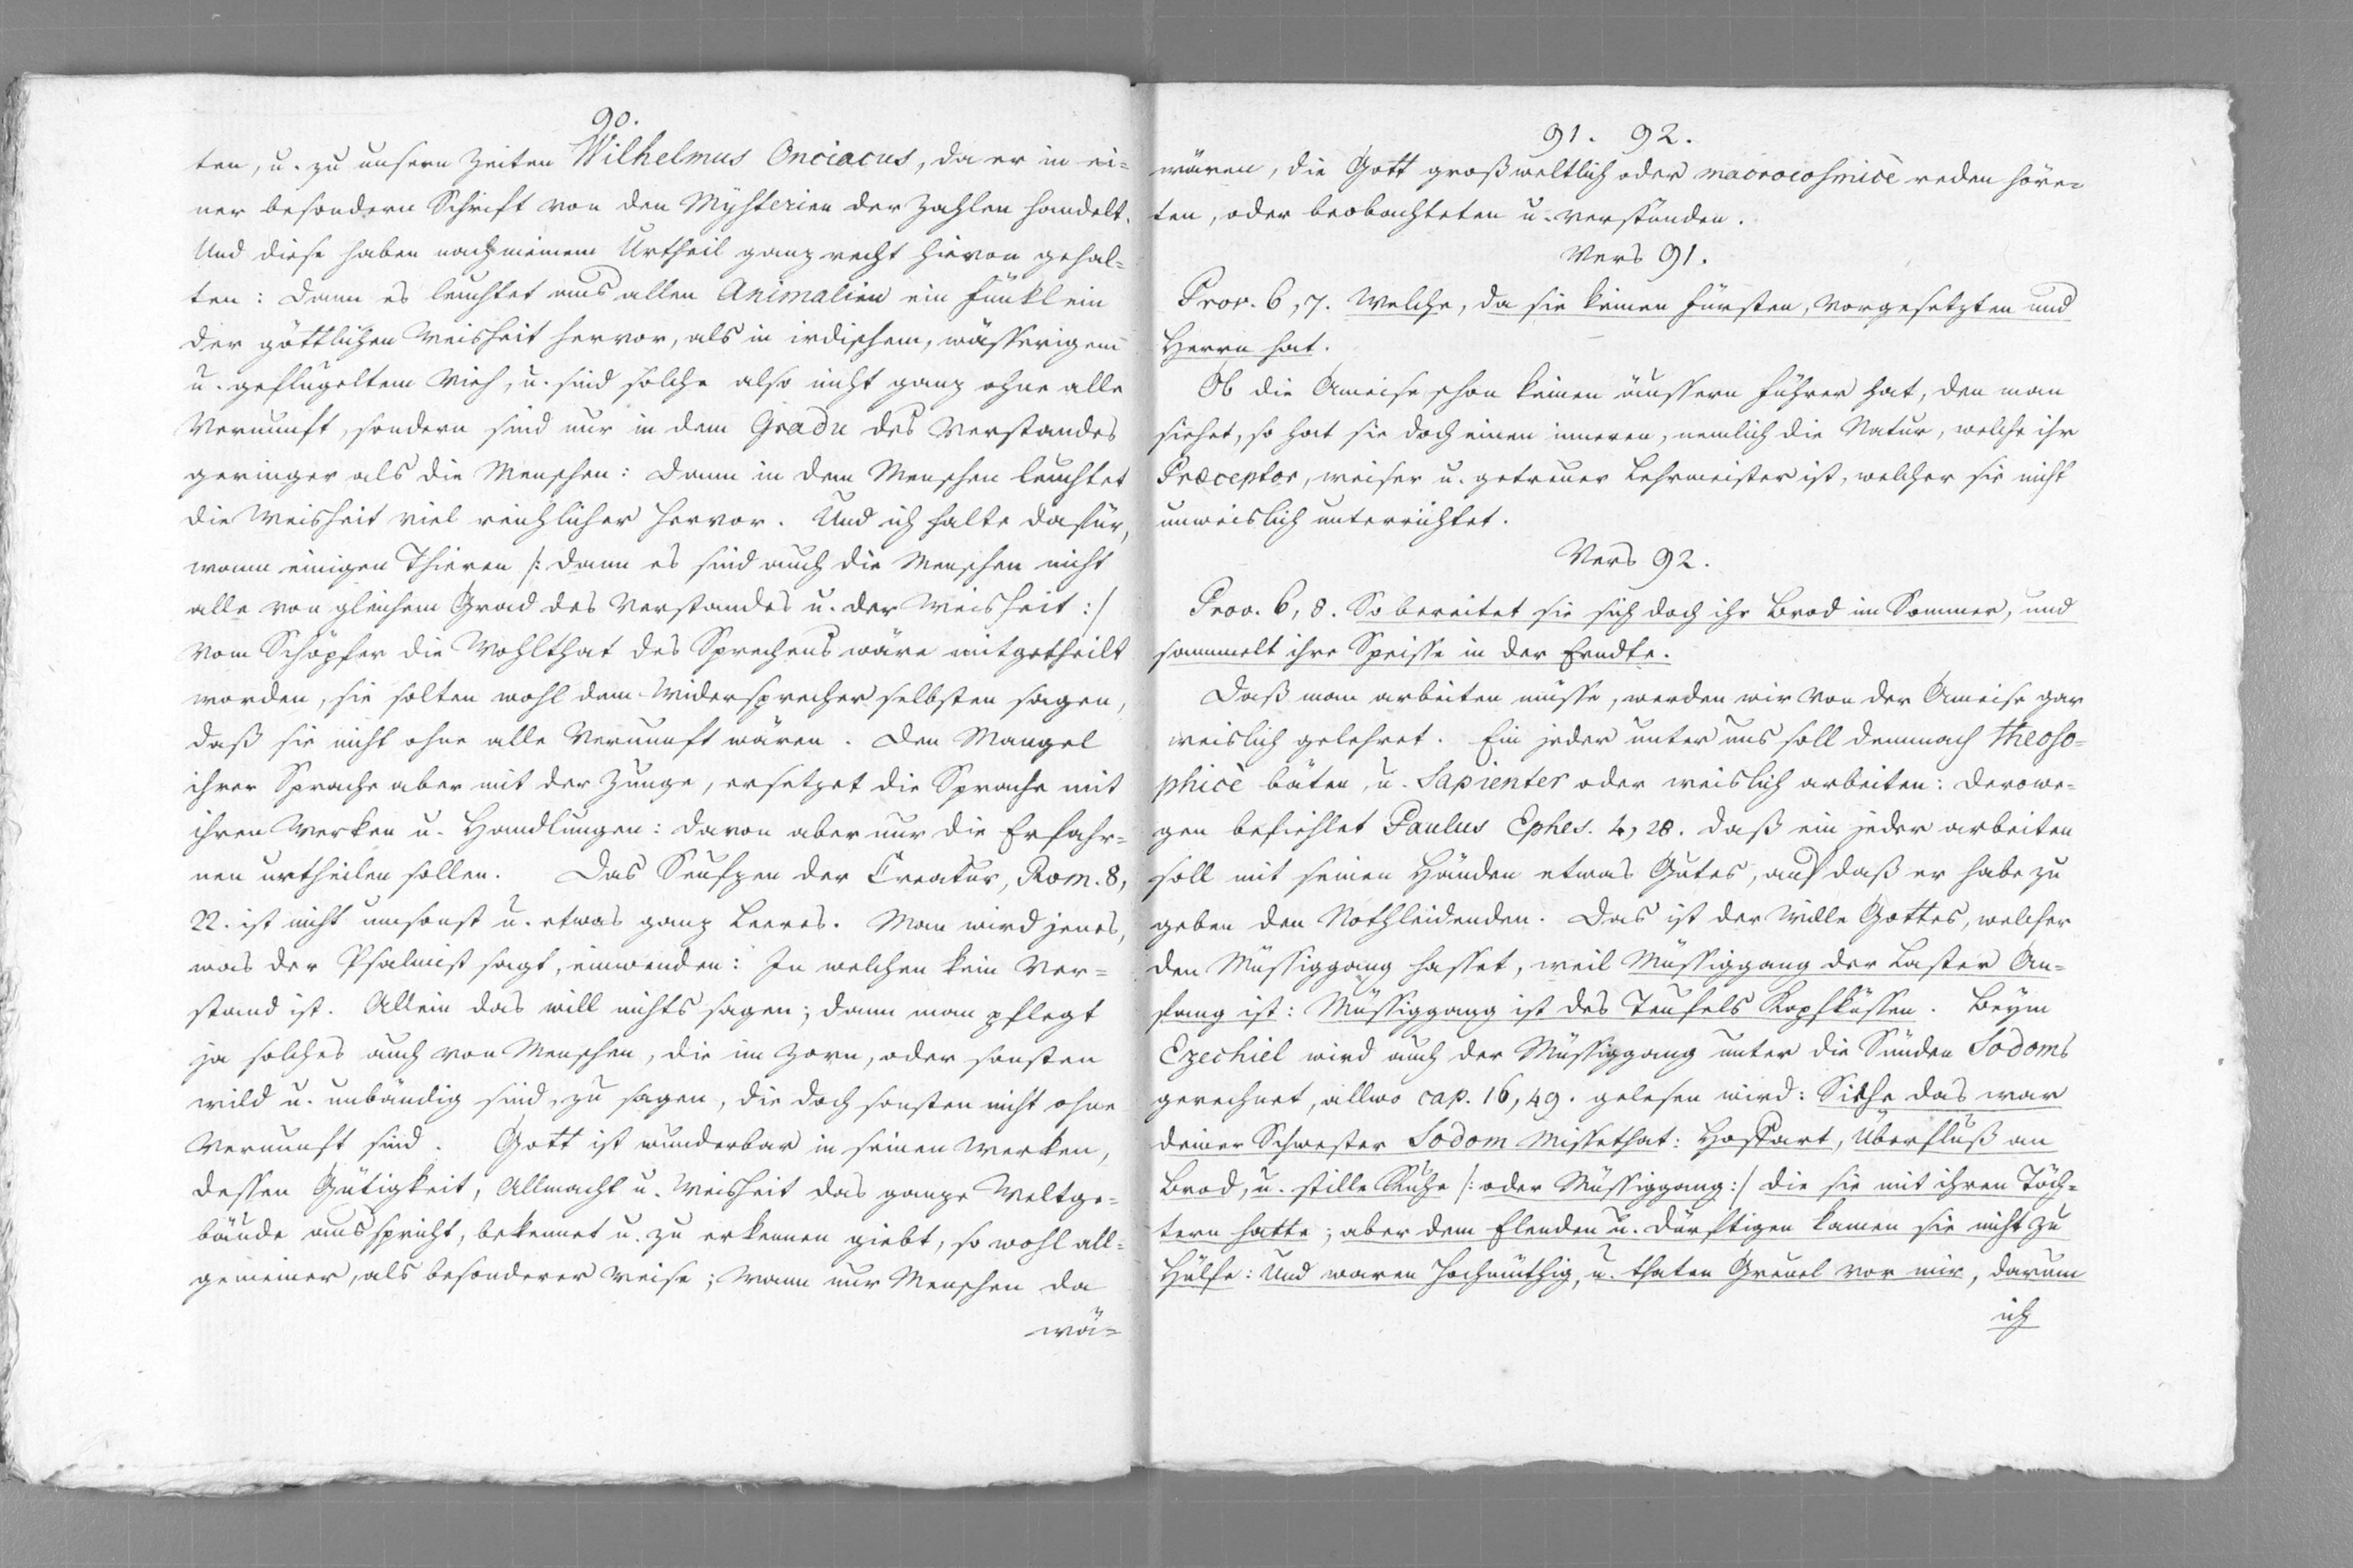 90.
ten, u. zu unsern Zeiten Wilhelmus Onciacus, da er in ei=
ner besondern Schrift von den Mysterien der Zahlen handelt.
Und diese haben nach meinem Urtheil ganz recht hievon gehal=
ten: dann es leuchtet aus allen Animalien ein Fünklein
der göttlichen Weisheit hervor, als in irdischem, wässerigem
u. geflügeltem Vieh, u. sind solche also nicht ganz ohne alle
Vernunft, sondern sind nur in dem Gradu des Verstandes
geringer als die Menschen: dann in dem Menschen leuchtet
die Weisheit viel reichlicher hervor. Und ich halte dafür,
wann einigen Thieren /: dann es sind auch die Menschen nicht
alle von gleichem Grad des Verstandes u. der Weisheit :/
vom Schöpfer die Wohlthat des Sprechens wäre mitgetheilt
worden, sie solten wohl dem Widersprecher selbsten sagen,
daß sie nicht ohne alle Vernunft wären. Den Mangel
ihrer Sprache aber mit der Zunge, ersetzet die Sprache mit
ihren Werken u. Handlungen: davon aber nur die Erfahr=
nen urtheilen sollen. Das Seufzen der Creatur, Rom. 8,
22. ist nicht umsonst u. etwas ganz Leeres. Man wird jenes,
was der Psalmist sagt, einwenden: In welchen kein Ver=
stand ist. Allein das will nichts sagen; dann man pflegt
ja solches auch von Menschen, die im Zorn, oder sonsten
wild u. unbändig sind, zu sagen, die doch sonsten nicht ohne
Vernunft sind. Gott ist wunderbar in seinen Werken,
dessen Gütigkeit, Allmacht u. Weisheit das ganze Weltge=
bäude ausspricht, bekennet u. zu erkennen giebt, so wohl all=
gemeiner, als besonderer Weise; wann nur Menschen da
wä=
91. 92.
wären, die Gott großweltlich oder macrocosmicè reden höre=
ten, oder beobachteten u. verstünden.
Vers 91.
Prov. 6, 7. Welche, da sie keinen Fürsten, Vorgesetzten und
Herrn hat.
Ob die Ameise schon keinen äussern Führer hat, den man
siehet, so hat sie doch einen inneren, nemlich die Natur, welche ihr
Præceptor, weiser u. getreuer Lehrmeister ist, welcher sie nicht
unweislich unterrichtet.
Vers 92.
Prov. 6, 8. So bereitet sie sich doch ihr Brod im Sommer, und
sammelt ihre Speisse in der Erndte.
Daß man arbeiten müsse, werden wir von der Ameise gar
weislich gelehret. Ein jeder unter uns soll demnach theoso=
phicè bäten, u. Sapienter oder weislich arbeiten: derowe=
gen befiehlet Paulus Ephes. 4, 28. daß ein jeder arbeiten
soll mit seinen Händen etwas Gutes, auf daß er habe zu
geben den Nothleidenden. Das ist der Wille Gottes, welcher
den Müssiggang hasset, weil Müssiggang der Laster An=
fang ist: Müssiggang ist des Teufels Kopfküssen. Beym
Ezechiel wird auch der Müssiggang unter die Sünden Sodoms
gerechnet, allwo cap. 16, 49. gelesen wird: Siehe das war
deiner Schwester Sodom Missethat: Hoffart, Überfluß an
Brod, u. stille Ruhe /: oder Müssiggang :/ die sie mit ihren Töch=
tern hatte; aber dem Elenden u. Dürftigen kamen sie nicht zu
Hülfe: Und waren hochmüthig, u. thaten Greuel vor mir, darum
ich